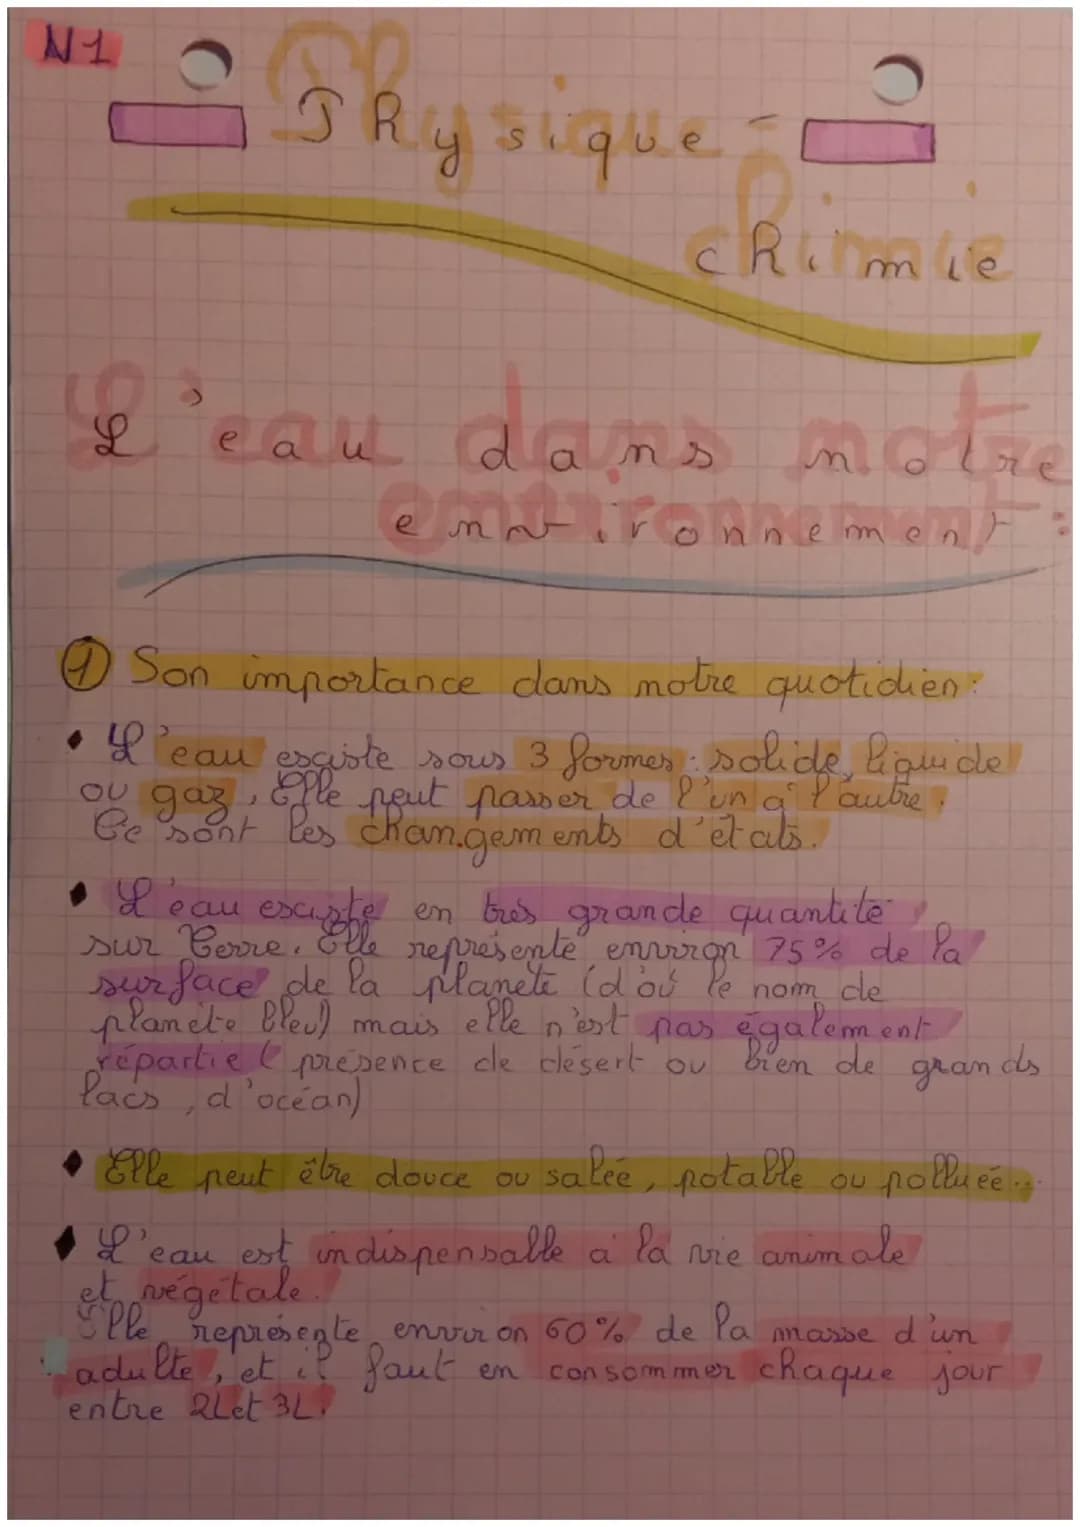 N1
Physique-
chimie
L'eau dans notre
environnement :
① Son importance dans notre quotidien :
L'eau existe sous 3 formes : solide, liquide
ou gaz, Elle peut passer de l'un à l'autre.
Ce sont les changements d'états.
L'eau existe en très grande quantité
sur Terre. Elle représente environ 75% de la
surface de la planète (d'où le nom de
planète bleu) mais elle n'est pas également
répartie (présence de désert ou bien de grands
lacs, d'océan)
Elle peut être douce ou salée, potable ou polluée...
L'eau est indispensable à la vie animale
et végétale.
Elle représente environ 60% de la masse d'un
adulte, et il faut en consommer chaque jour
entre 2L et 3L.